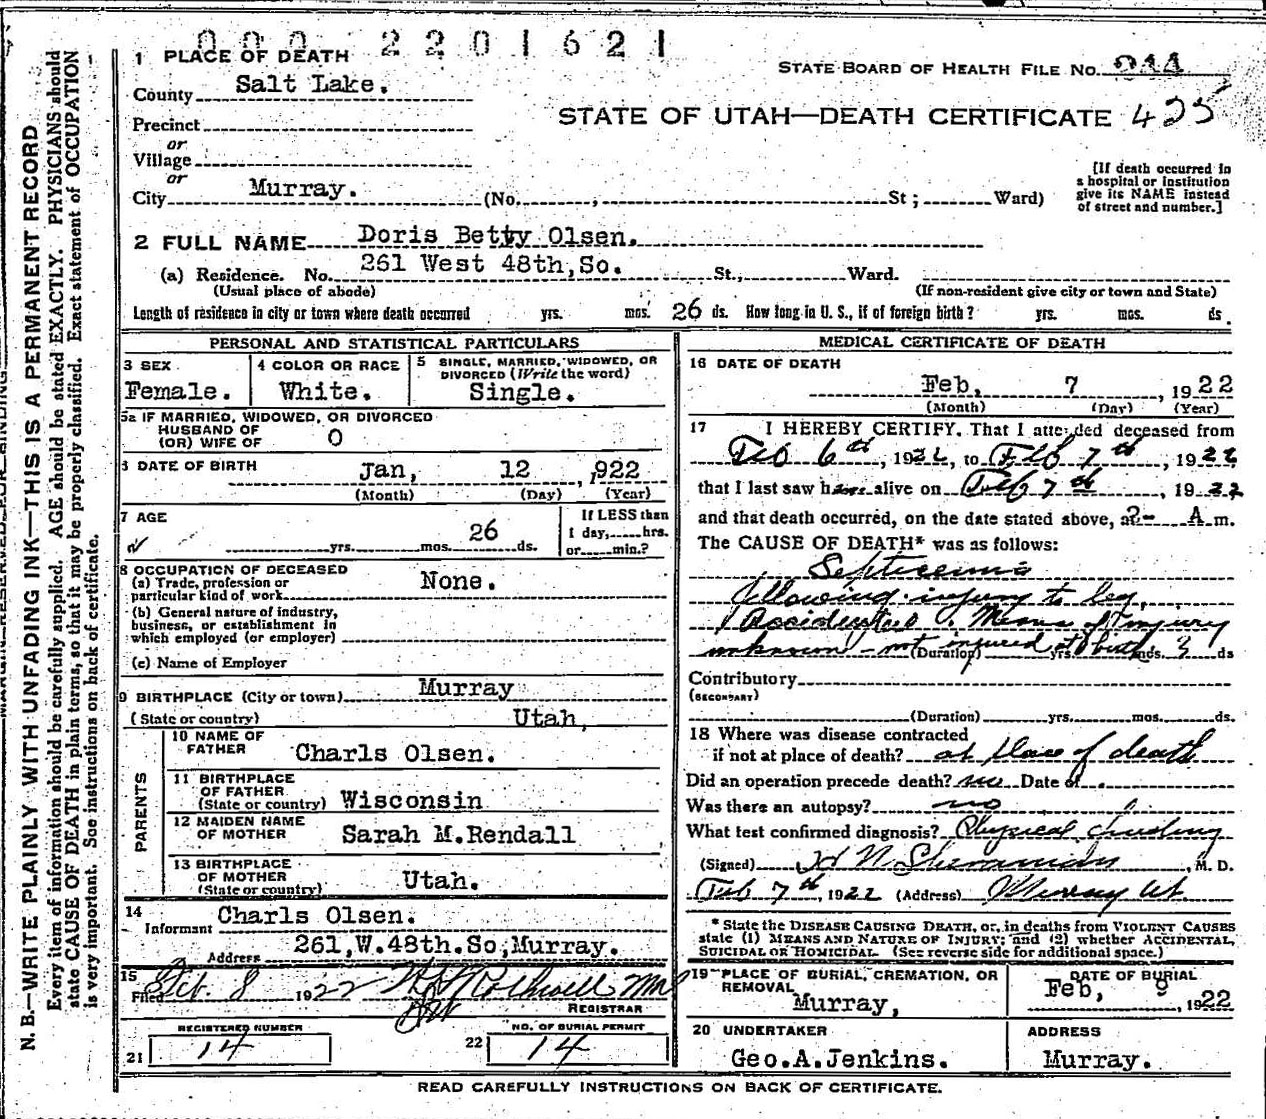 0 0 0 2 2 0 1 6 2 1
1 PLACE OF DEATH
STATE BOARD OF HEALTH FILE NO.
County Salt Lake.
STATE OF UTAH—DEATH CERTIFICATE 425
Precinct
or
Village
or
City Murray. (No. , St ; Ward)
[If death occurred in
a hospital or institution
give its NAME instead
of street and number.]
2 FULL NAME Doris Betty Olsen.
(a) Residence. No. 261 West 48th,So. St., Ward.
(Usual place of abode) (If non-resident give city or town and State)
Length of residence in city or town where death occurred yrs. mos. 26 ds. How long in U. S., if of foreign birth? yrs. mos. ds.
PERSONAL AND STATISTICAL PARTICULARS
3 SEX
Female.
4 COLOR OR RACE
White.
5 SINGLE, MARRIED, WIDOWED, OR
DIVORCED (Write the word)
Single.
5a IF MARRIED, WIDOWED, OR DIVORCED
HUSBAND OF
(OR) WIFE OF O
6 DATE OF BIRTH Jan, 12 , 1922
(Month) (Day) (Year)
7 AGE
yrs. mos. 26 ds.
If LESS than
1 day, hrs.
or min.?
8 OCCUPATION OF DECEASED
(a) Trade, profession or
particular kind of work None.
(b) General nature of industry,
business, or establishment in
which employed (or employer)
(c) Name of Employer
9 BIRTHPLACE (City or town) Murray
(State or country) Utah,
PARENTS
10 NAME OF
FATHER Charls Olsen.
11 BIRTHPLACE
OF FATHER
(State or country) Wisconsin
12 MAIDEN NAME
OF MOTHER Sarah M.Rendall
13 BIRTHPLACE
OF MOTHER
(State or country) Utah.
14
Informant Charls Olsen.
Address 261,W.48th.So,Murray.
15
Filed Feb. 8 1922
REGISTRAR
REGISTERED NUMBER
21 14
NO. OF BURIAL PERMIT
22 14
MEDICAL CERTIFICATE OF DEATH
16 DATE OF DEATH
Feb, 7 , 1922
(Month) (Day) (Year)
17 I HEREBY CERTIFY, That I attended deceased from
Feb 6th, 1922, to Feb 7th, 1922
that I last saw h alive on Feb 7th, 1922
and that death occurred, on the date stated above, at 2- A m.
The CAUSE OF DEATH* was as follows:
Septicemia
following injury to leg,
Accidental. Means of injury
unknown - not injured at birth (Duration) yrs. mos. 3 ds
Contributory
(SECONDARY)
(Duration) yrs. mos. ds.
18 Where was disease contracted
if not at place of death? at place of death
Did an operation precede death? no Date of
Was there an autopsy? no
What test confirmed diagnosis? Physical finding
(Signed) , M. D.
Feb 7th, 1922 (Address) Murray Ut.
* State the DISEASE CAUSING DEATH, or, in deaths from VIOLENT CAUSES
state (1) MEANS AND NATURE OF INJURY; and (2) whether ACCIDENTAL,
SUICIDAL OR HOMICIDAL. (See reverse side for additional space.)
19 PLACE OF BURIAL, CREMATION, OR
REMOVAL
Murray,
DATE OF BURIAL
Feb, 9 , 1922
20 UNDERTAKER
Geo.A.Jenkins.
ADDRESS
Murray.
READ CAREFULLY INSTRUCTIONS ON BACK OF CERTIFICATE.
MARGIN RESERVED FOR BINDING
N. B.—WRITE PLAINLY WITH UNFADING INK—THIS IS A PERMANENT RECORD
Every item of information should be carefully supplied. AGE should be stated EXACTLY. PHYSICIANS should
state CAUSE OF DEATH in plain terms, so that it may be properly classified. Exact statement of OCCUPATION
is very important. See instructions on back of certificate.